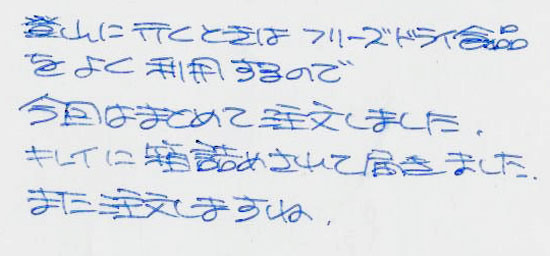 登山に行くときは フリーズドライ食品
をよく利用するので
今回はまとめて注文しました.
キレイに箱詰めされて届きました.
また注文しますね.